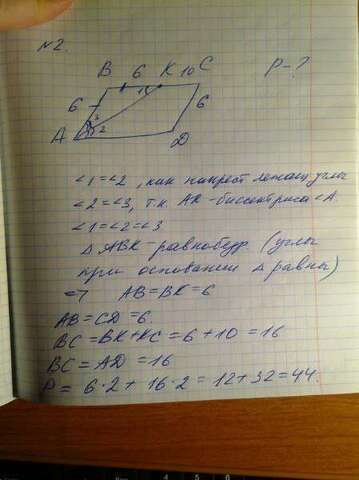 №2.
B 6 K 10 C P-?
6 1 6
A 3 2 D
∠1=∠2, как накрест лежащ углы
∠2=∠3, т.к. AK-биссектриса ∠A.
∠1=∠2=∠3
△ ABK-равнобедр. (углы
при основании △ равны)
=> AB=BK=6
AB=CD=6.
BC=BK+KC=6+10=16
BC=AD=16
P=6·2+16·2=12+32=44.
4 5 6